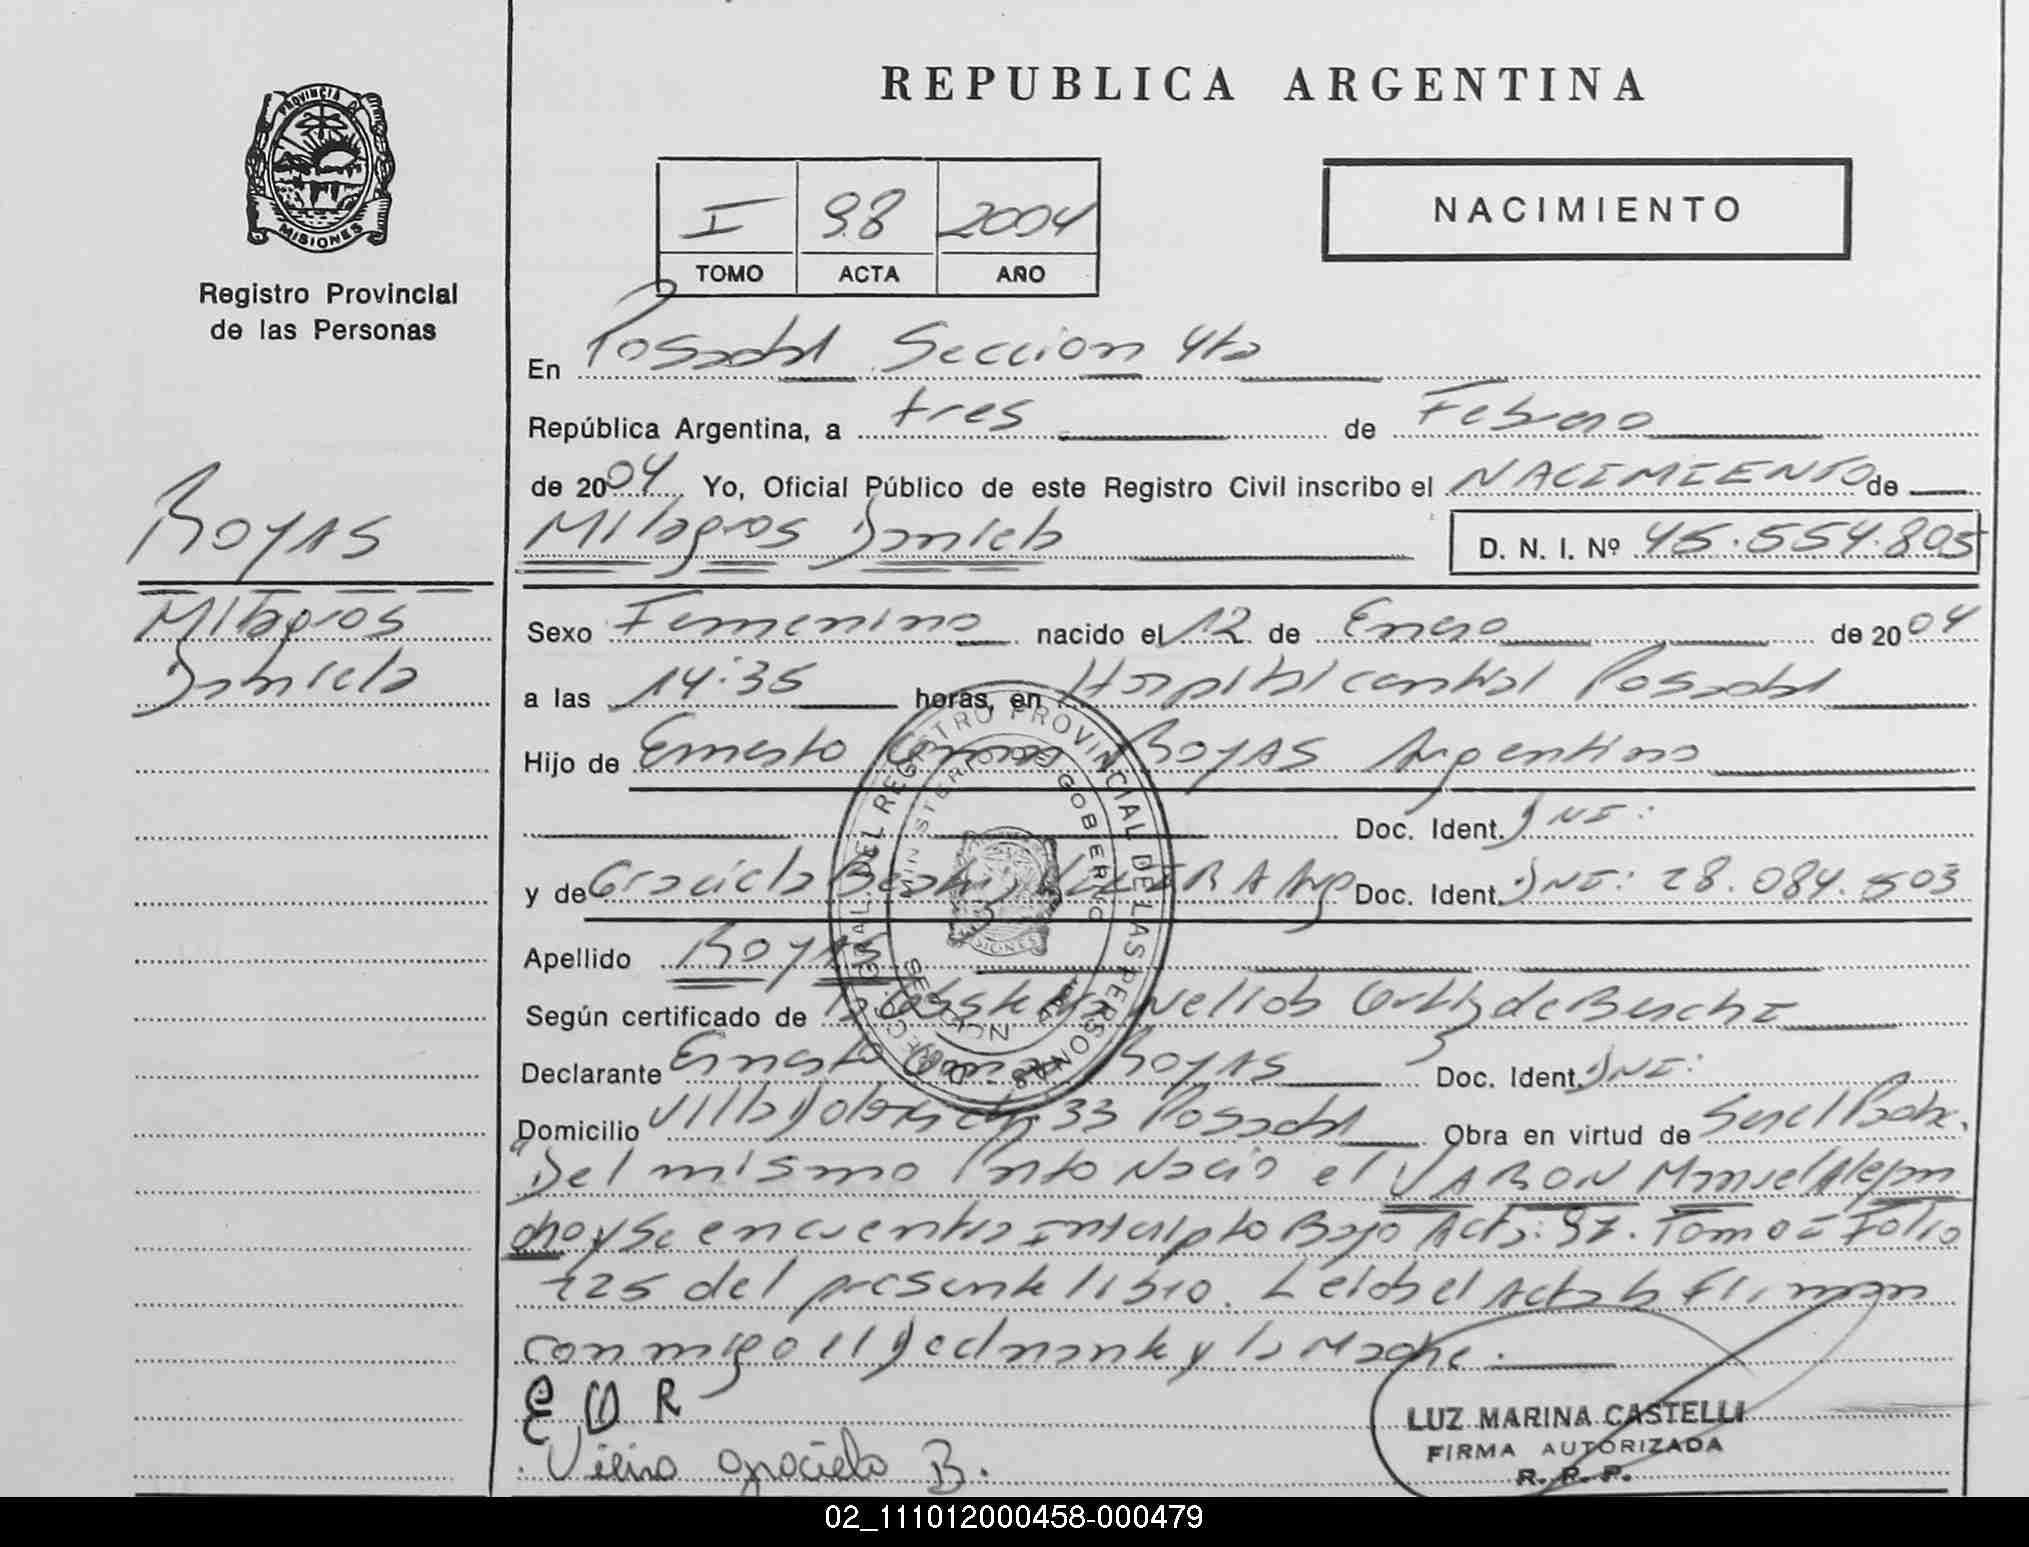 PROVINCIA DE
MISIONES
Registro Provincial
de las Personas
ROJAS
Milagros
Daniela
REPUBLICA ARGENTINA
I 98 2004
TOMO ACTA AÑO
NACIMIENTO
En Posadas Seccion 4ta
República Argentina, a tres de Febrero
de 2004 Yo, Oficial Público de este Registro Civil inscribo el NACIMIENTO de
Milagros Daniela D. N. I. Nº 45.554.805
Sexo Femenino nacido el 12 de Enero de 2004
a las 14:35 horas, en Hospital central Posadas
Hijo de Ernesto ROJAS Argentino
Doc. Ident. DNI:
y de Graciela Beatriz VIEIRA Arg Doc. Ident. DNI: 28.084.503
Apellido ROJAS
Según certificado de Obstetra Nelida Ortiz de
Declarante Ernesto ROJAS Doc. Ident. DNI:
Domicilio Villa 33 Posadas Obra en virtud de Ser el Padre.
"Del mismo Parto Nacio el VARON Manuel Alejan
dro y se encuentra Inscripto Bajo Acta: 97. Tomo I Folio
125 del presente libro. Leida el Acta la Firman
conmigo el Declarante y la Madre.
E O R
Vieira Graciela B.
LUZ MARINA CASTELLI
FIRMA AUTORIZADA
R. P. P.
DEL REGISTRO PROVINCIAL DE LAS PERSONAS
MINISTERIO DE GOBIERNO
02_111012000458-000479